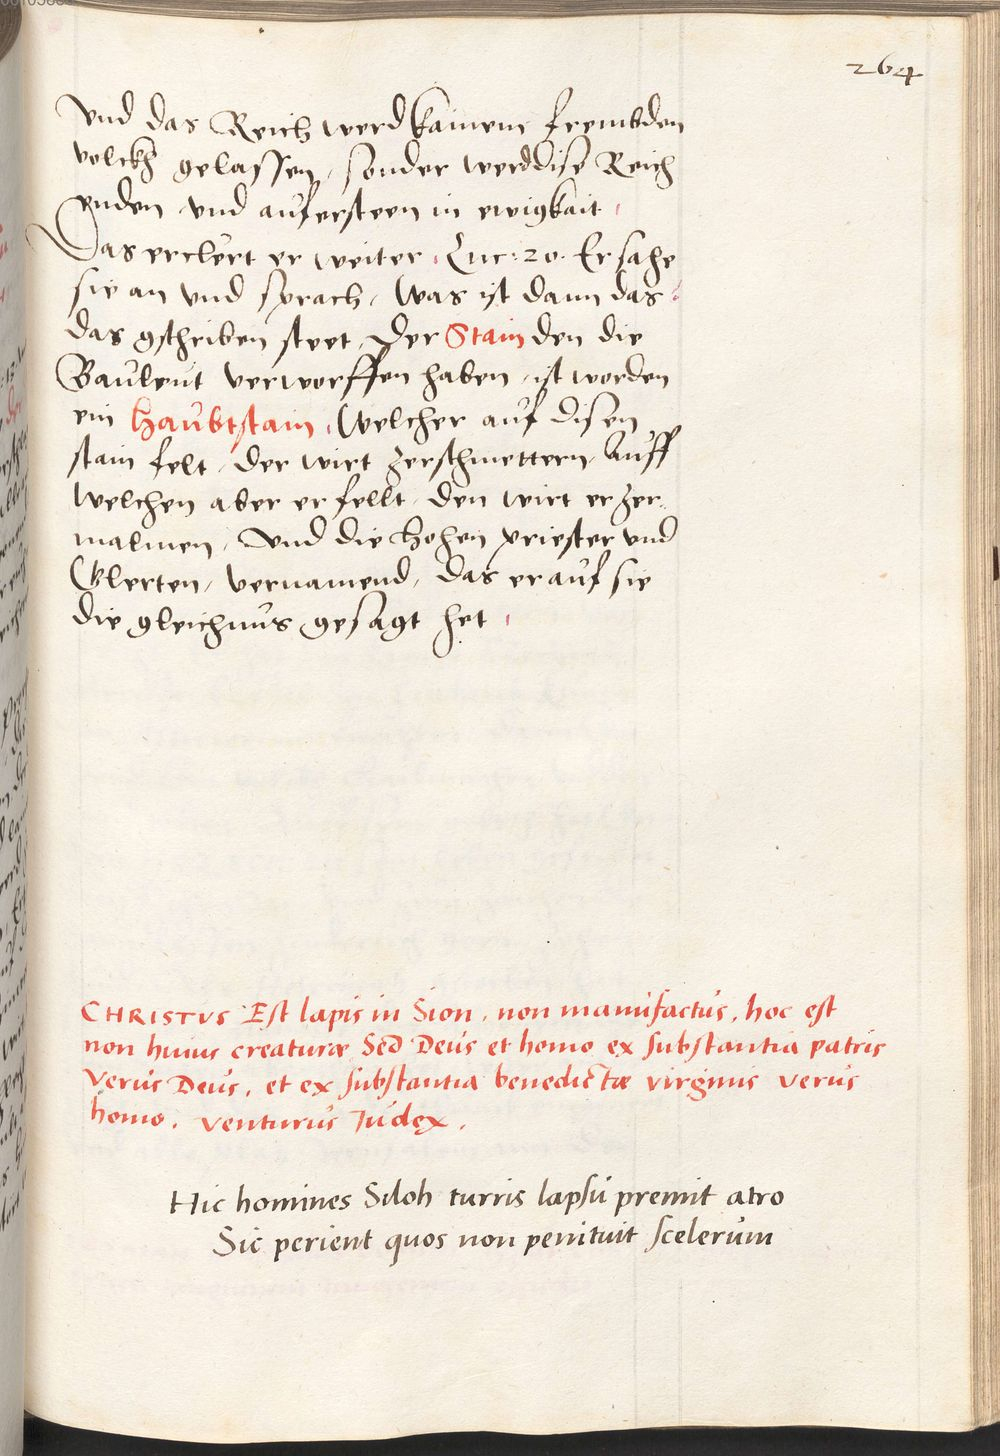 264
vnd das Reich werd kainem frembden
volckh gelassen, sonder werd dise Reich
enden vnd aufersteen in ewigkait.
Das erclert er weiter. Luc: 20. Er sahe
sie an vnd sprach, Was ist dann das
das gschriben steet, Der Stain den die
Bauleut verworffen haben, ist worden
ein Haubtstain, Welcher auf disen
stain felt, der wirt zerschmettern, Auff
welchen aber er fellt, den wirt er zer-
malmen, Vnd die hohen priester vnd
Glerten, vernamend, das er auf sie
die gleichnus gesagt het.
CHRISTVS Est lapis in Sion, non manufactus, hoc est
non huius creaturæ Sed Deus et homo ex substantia patris
Verus Deus, et ex substantia benedictæ virginis verus
homo. venturus Iudex.
Hic homines Siloh turris lapsu premit atro
Sic perient quos non penituit scelerum